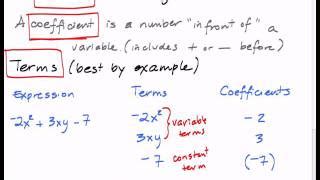 A coefficient is a number "in front of" a
variable (includes + or – before)
Terms (best by example)
Expression Terms Coefficients
-2x² + 3xy - 7 -2x² -2
variable
3xy terms 3
-7 constant term (-7)